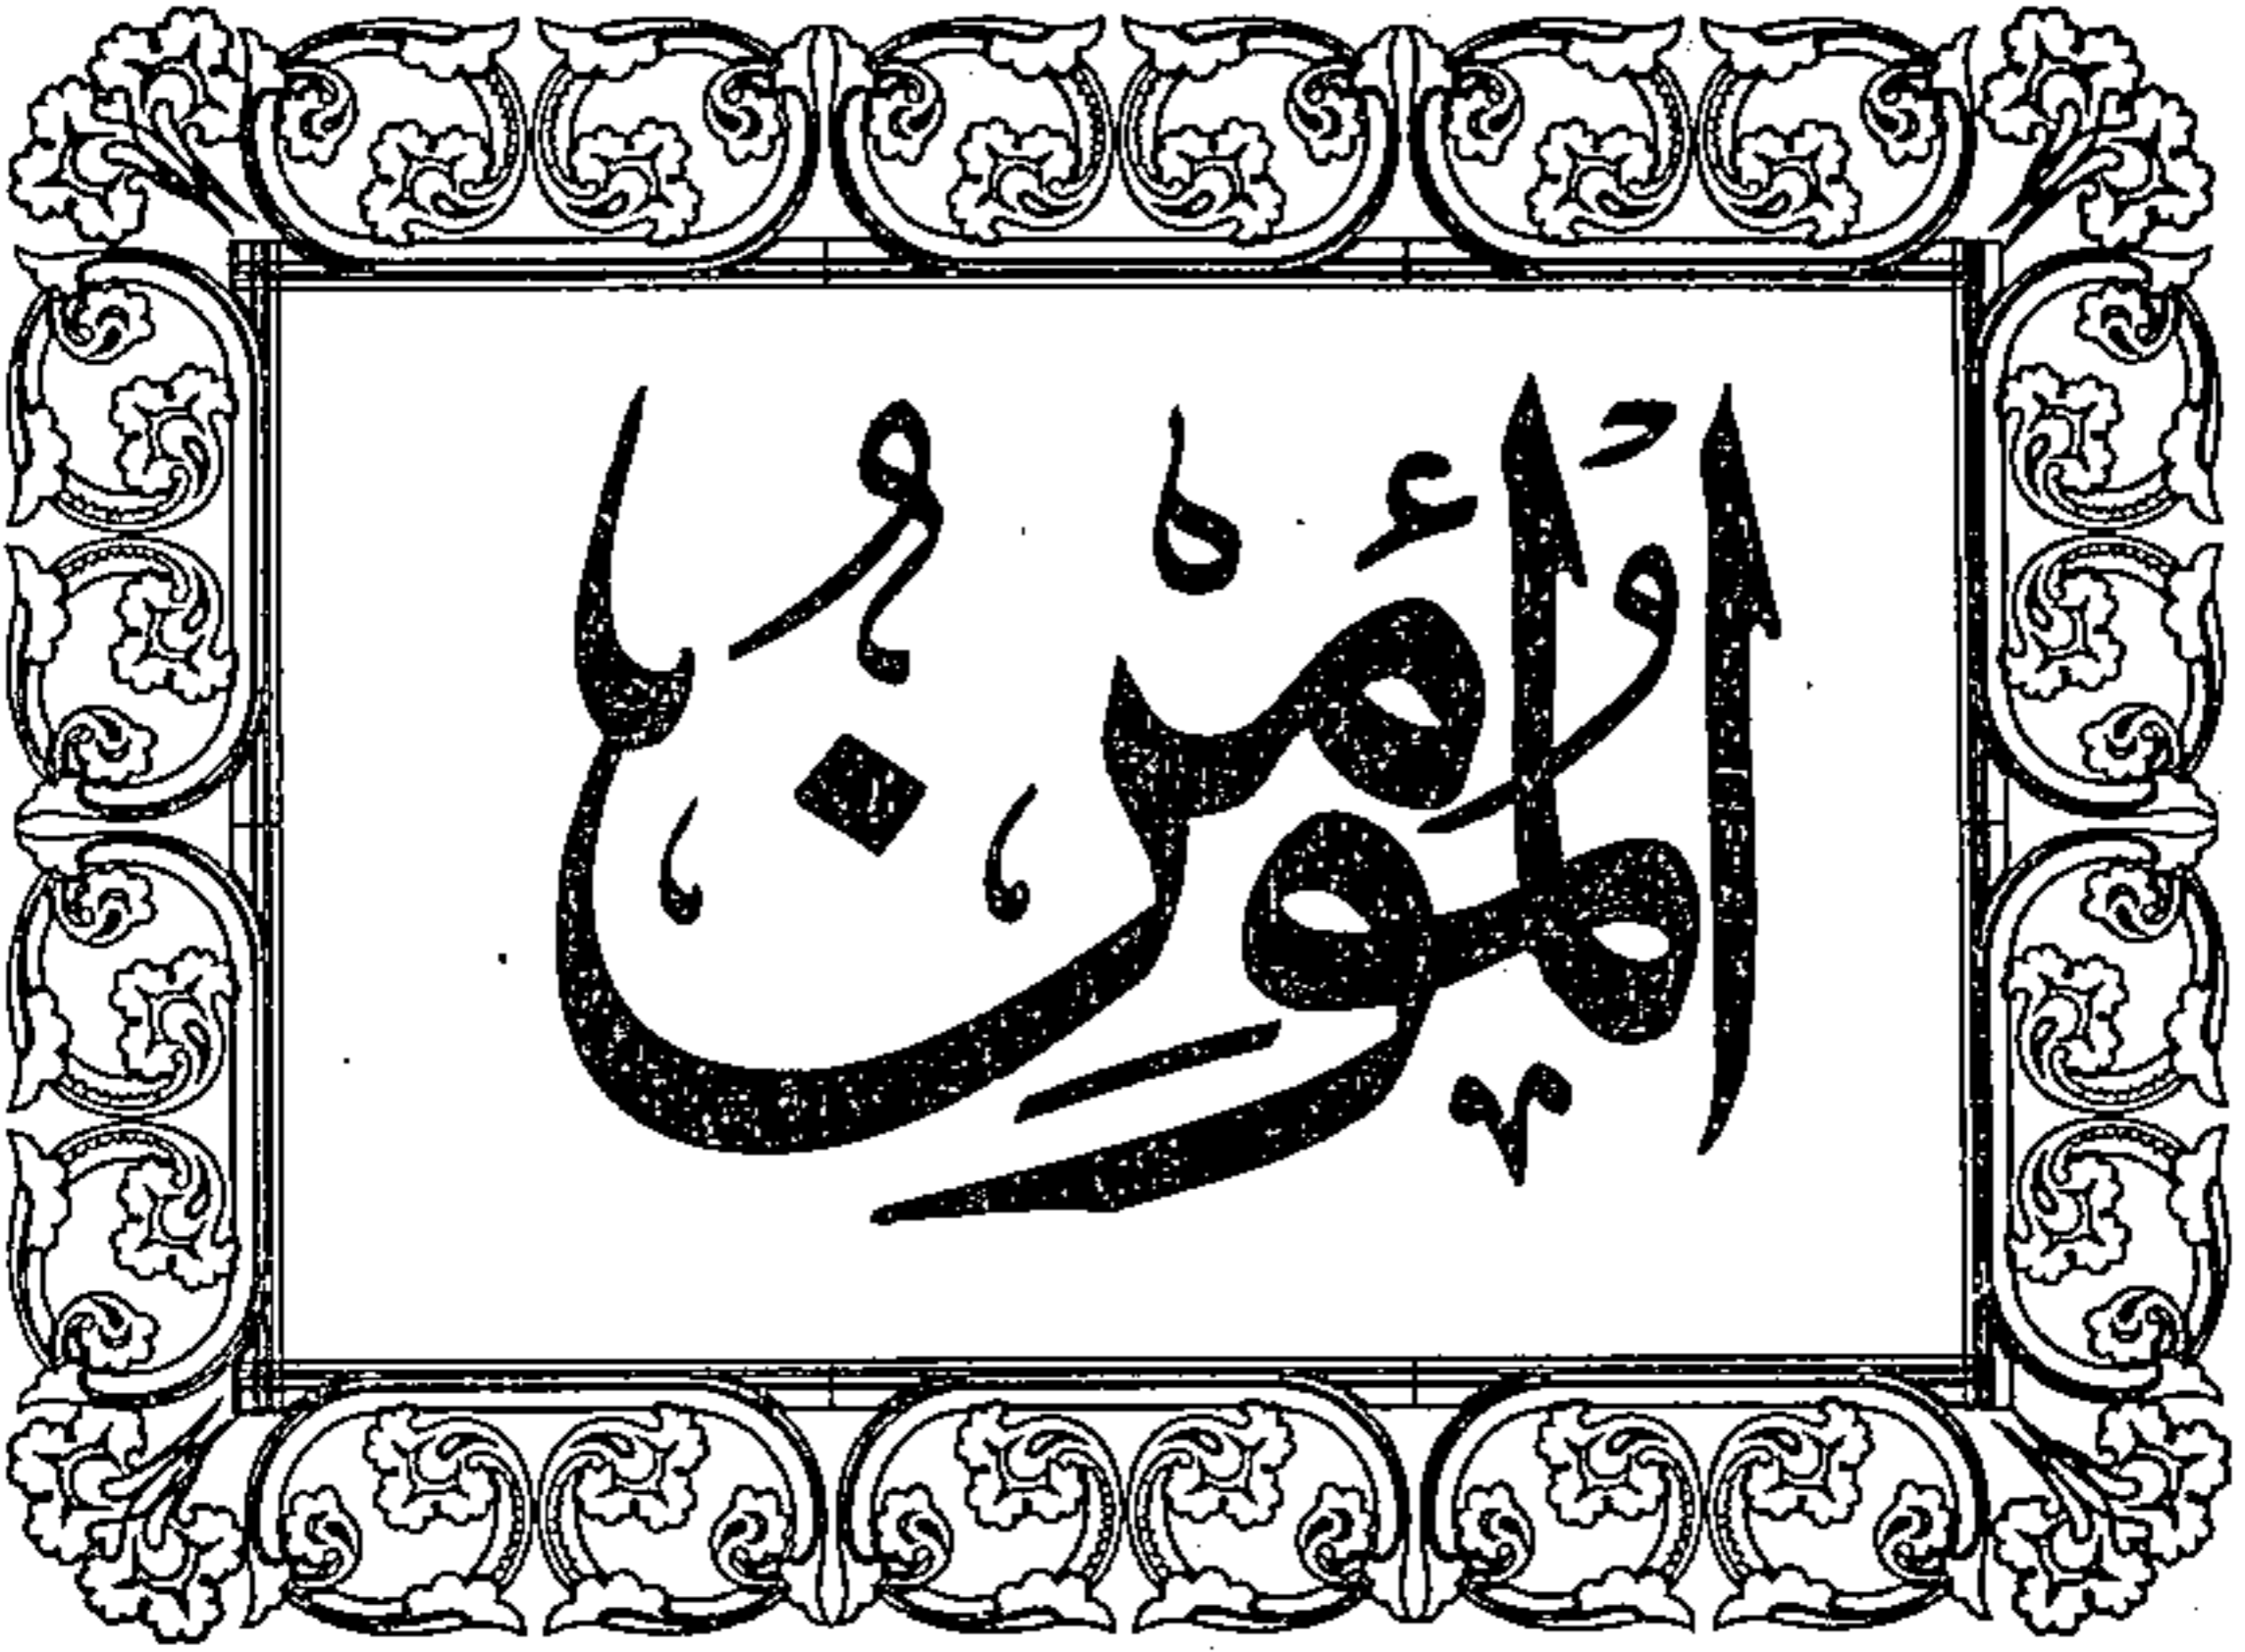 الْمُؤْمِنُ